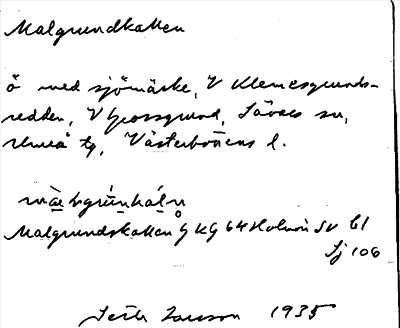 Malgrundkallen
ö med sjömärke, V Klemensgrunds-
redden, V Grossgrund, Sävars sn,
Umeå tg, Västerbottens l.
Malgrundskallen G KG 64 Holmön SV bl
Sj 106
1935